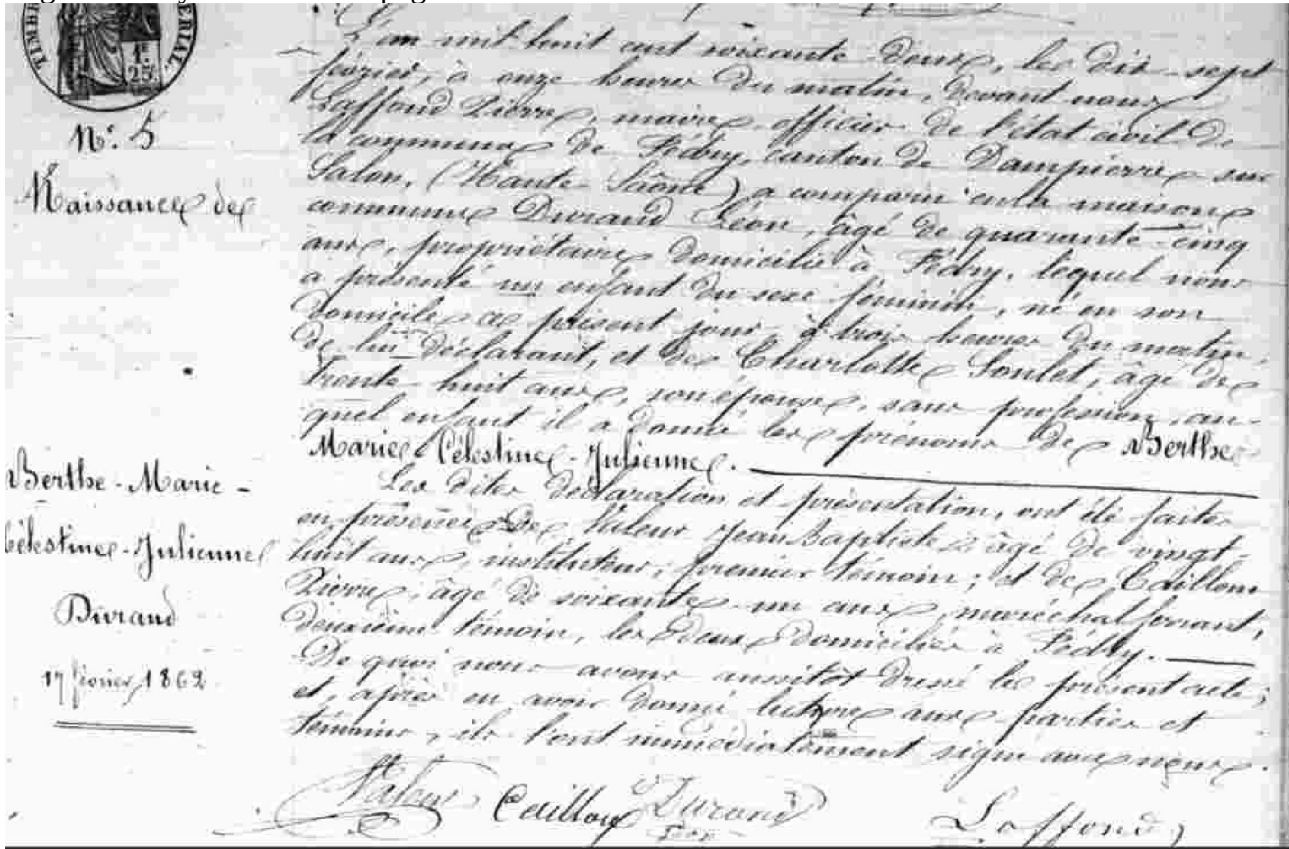 TIMBRE IMPÉRIAL
1F
25
L'an mil huit cent soixante-Deux, le dix-sept
février, à onze heures du matin, devant nous
Laffond Pierre, maire, officier de l'état civil de
la commune de Fédry, canton de Dampierre sur
Salon, (Haute-Saône) a comparu en la maison
commune Durand Léon, âgé de quarante-cinq
ans, propriétaire domicilié à Fédry, lequel nous
a présenté un enfant du sexe féminin, né en son
domicile ce présent jour à trois heures du matin,
de lui déclarant, et de Charlotte Soulet, âgé de
trente-huit ans, son épouse, sans profession, au-
quel enfant il a donné les prénoms de Berthe
Marie Célestine-Julienne.
Les dites déclaration et présentation, ont été faites
en présence de Valeur Jean Baptiste âgé de vingt-
huit ans, instituteur, premier témoin; et de Caillou
Pierre, âgé de soixante-un ans, maréchal ferrant,
deuxième témoin, les deux domiciliés à Fédry.
De quoi nous avons aussitôt dressé le présent acte;
et, après en avoir donné lecture aux parties et
témoins, ils l'ont immédiatement signé avec nous.
Valeur Caillou Durand Laffond
N°. 5
Naissance de
Berthe-Marie-
Célestine-Julienne
Durand
17 février 1862